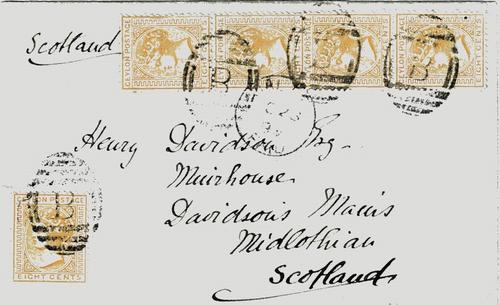 Scotland
CEYLON POSTAGE EIGHT CENTS
CEYLON POSTAGE EIGHT CENTS
CEYLON POSTAGE EIGHT CENTS
CEYLON POSTAGE EIGHT CENTS
B
B
B
Henry Davidson Esq
Muirhouse
Davidson's Mains
Midlothian
Scotland
CEYLON POSTAGE
B
EIGHT CENTS